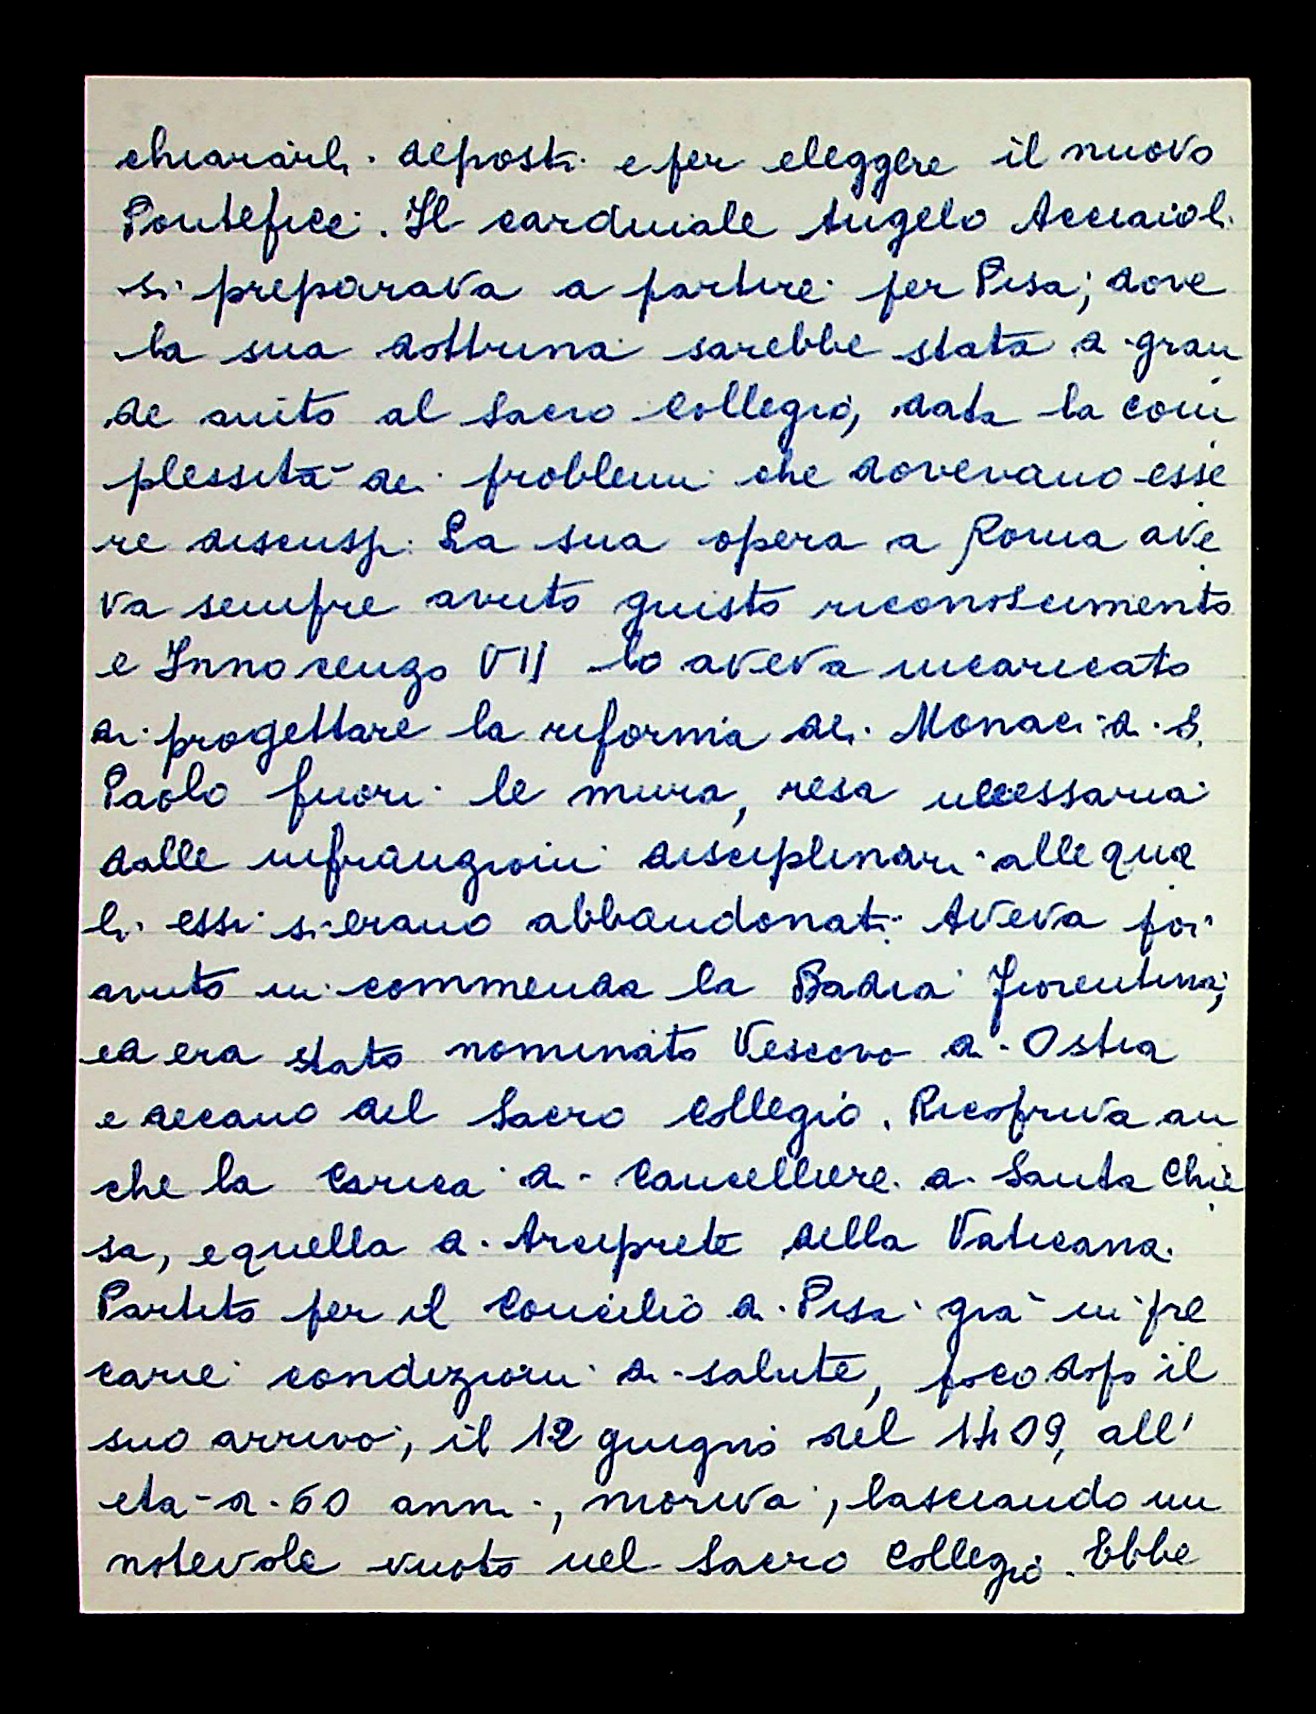 chiararli deposti e per eleggere il nuovo
Pontefice. Il cardinale Angelo Acciaioli
si preparava a partire per Pisa, dove
la sua dottrina sarebbe stata a gran
de aiuto al Sacro Collegio, data la com
plessità dei problemi che dovevano esse
re discussi. La sua opera a Roma ave
va sempre avuto giusto riconoscimento
e Innocenzo VII lo aveva incaricato
di progettare la riforma dei Monaci di S.
Paolo fuori le mura, resa necessaria
dalle infrangioni disciplinari alle qua
li essi si erano abbandonati. Aveva poi
avuto in commenda la Badia Fiorentina,
ed era stato nominato Vescovo di Ostia
e decano del Sacro Collegio. Ricopriva an
che la carica di Cancelliere di Santa Chie
sa, e quella di Arciprete della Vaticana.
Partito per il Concilio di Pisa già in pre
carie condizioni di salute, poco dopo il
suo arrivo, il 12 giugno del 1409, all'
età di 60 anni, moriva, lasciando un
notevole vuoto nel Sacro Collegio. Ebbe